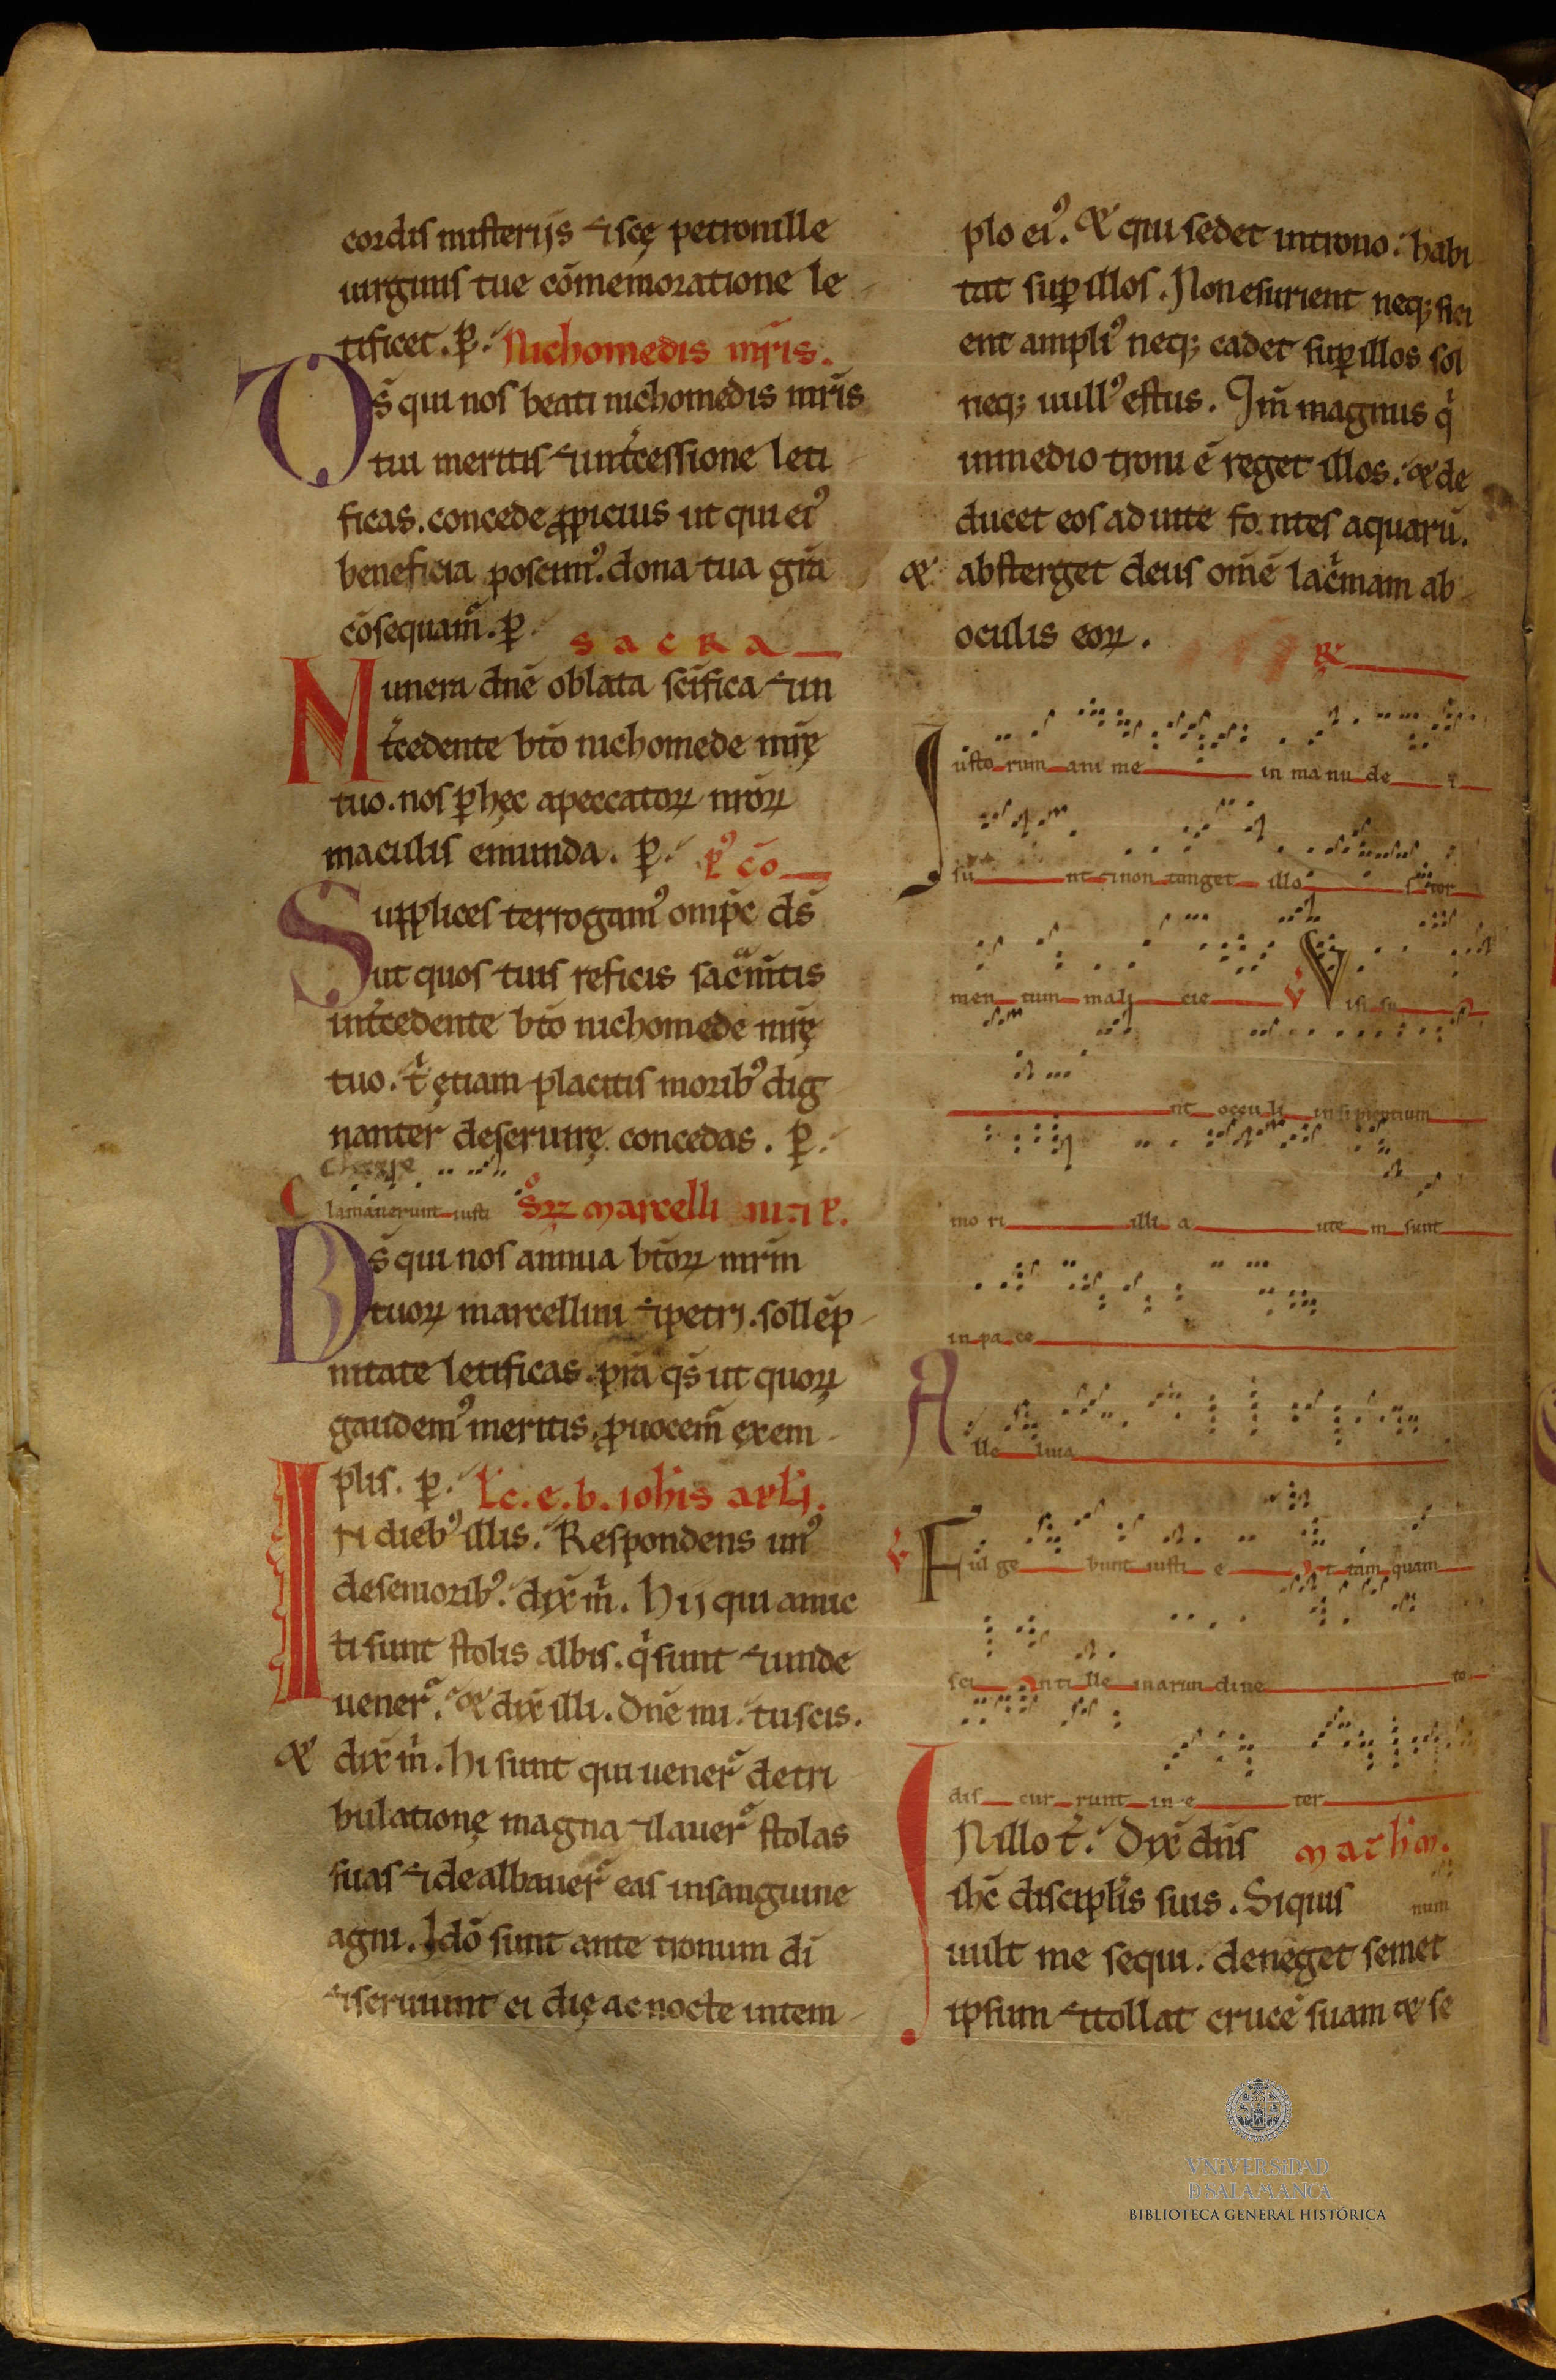 cordis misterijs ⁊ scę petronille
uirginis tue cōmemoratione le
tificet. p̲. Nichomedis mr̄is.
D̄s qui nos beati nichomedis mr̄is
tui meritis ⁊ int̄cessione leti
ficas. concede ꝓpicius ut qui ei᾿
beneficia poscim᾿. dona tua gr̄a
cōsequam̄. p̲.
sacra
Munera dn̄e oblata sc̄ifica ⁊ in
t̄cedente bt̄o nichomede mr̄ę
tuo. nos p̲ hęc apeccatoꝝ nr̄oꝝ
maculis emunda. p̲. p᾿ cō
Supplices te rogam᾿ omp̄c d̄s
ut quos tuis reficis sac̄am̄tis
int̄cedente bt̄o nichomede mr̄ę
tuo. t̄ ętiam placitis morib᾿ dig
nanter deseruirę concedas. p̲.
Clamauerunt iusti Sꝝ marcelli
D̄s qui nos annua bt̄oꝝ mr̄m
tuoꝝ marcellini ⁊ petri. sollēp
nitate letificas. pr̄a qs̄ ut quoꝝ
gaudem᾿ meritis, ꝓuocem̄ exem
plis. p̲. Lc̄. e. b. ioh̄is apl̄i.
IN dieb᾿ illis. Respondens un᾿
deseniorib᾿. dix̄ m̄. Hij qui amic
ti sunt stolis albis. q̄ sunt ⁊ unde
uener̄. & dix̄ illi. dn̄e mi. tu scis.
& dix̄ m̄. hi sunt qui uener̄ detri
bulationę magna ⁊ lauer̄ stolas
suas ⁊ dealbauer̄ eas insanguine
agni. Idō sunt ante tronum dī
⁊ seruiunt ei dię ac nocte intem
plo ei᾿. & qui sedet introno. habi
tat sup̲ illos. Non esurient neq; sici
ent ampli᾿ neq; cadet sup̲ illos sol
neq; ull᾿ estus. Qm̄ magnus q̄
inmedio troni ē reget illos. & de
ducet eos ad uite fontes aquarū.
& absterget deus om̄ē lac̄mam ab
oculis eoꝝ.
R̄
Iusto rum ani me in manu de i
su nt ⁊ non tanget illo s tor
men tum mali cie V Visi su
nt occu li insipientium
mo ri illi a ute m sunt
in pa ce
Alle luia
V Ful ge bunt iusti e t tam quam
sci nti lle inarun dine to
dis cur runt in e ter
IN illo t̄. Dix̄ dn̄s math̄m.
ih̄c discipl̄is suis. Siquis num
uult me sequi. deneget semet
ipsum ⁊ tollat crucē suam & se
VNiVERSiDAD
D SALAMANCA
BIBLIOTECA GENERAL HISTÓRICA